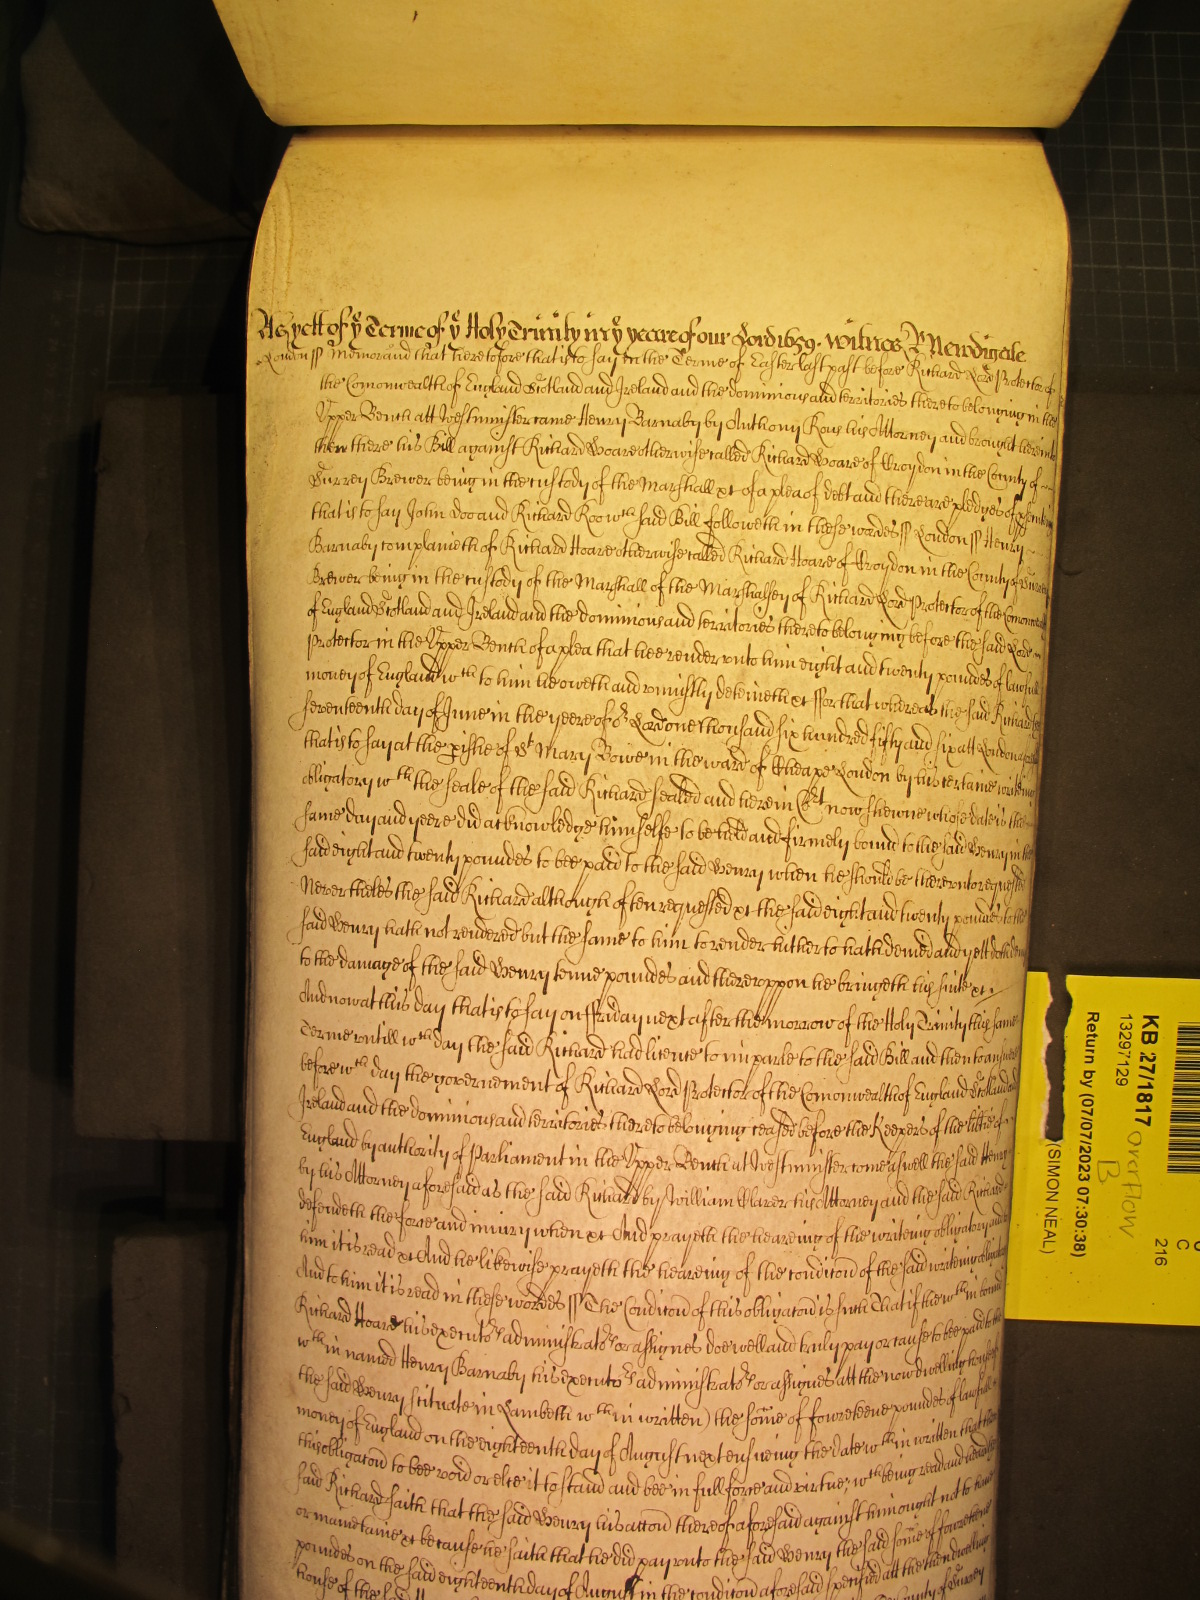 As yett of ye Terme of ye Holy Trinity in ye yeare of our Lord 1659. Witnes R Newdigate
London ss Memorand that heretofore that is to say in the Terme of Easter last past before Richard Lord Protector of
the Comonwealth of England Scotland and Ireland and the dominions and territories thereto belonging in the
Upper Bench att Westminster came Henry Barnaby by Anthony Rous his Attorney and brought here into
then there his Bill against Richard Hoare otherwise called Richard Hoare of Croydon in the County of
Surrey Brewer being in the custody of the Marshall xt of a plea of debt and there are pledges of
that is to say John Doo and Richard Roo wch said Bill followeth in these wordes ss London ss Henry
Barnaby complaineth of Richard Hoare otherwise called Richard Hoare of Croydon in the County of Surrey
Brewer being in the custody of the Marshall of the Marshalsey of Richard Lord Protector of the Comonwealth
of England Scotland and Ireland and the dominions and territories thereto belonging before the said Lord
Protector in the Upper Bench of a plea that hee render unto him eight and twenty poundes of lawfull
money of England wch to him he oweth and uniustly deteineth xt ffor that whereas the said Richard the
seventeenth day of June in the yeere of or Lord one thousand six hundred fifty and six att London
that is to say at the pishe of St Mary Bowe in the ward of Cheape London by his certaine writeing
obligatory wth the seale of the said Richard sealed and herein Court now shewne whose date is the
same day and yeere did acknowledge himselfe to be held and firmely bound to the said Henry in the
said eight and twenty poundes to bee paid to the said Henry when he should be thereunto requested
Nevertheles the said Richard although often requested xt the said eight and twenty poundes to the
said Henry hath not rendered but the same to him to render hitherto hath denied and yett doth deny
to the damage of the said Henry tenne poundes and thereuppon he bringeth his suite xt
And now at this day that is to say on ffriday next after the morrow of the Holy Trinity this same
Terme untill wch day the said Richard had licence to imparle to the said Bill and then to answere
before wch day the governement of Richard Lord Protector of the Comonwealth of England Scotland and
Ireland and the dominions and territories thereto belonging ceased before the Keepers of the libtie of
England by authority of Parliament in the Upper Bench at Westminster come aswell the said Henry
by his Attorney aforesaid as the said Richard by William his Attorney and the said Richard
defendeth the force and iniury when xt And prayeth the heareing of the writeing obligatory and to
him it is read xt And he likewise prayeth the heareing of the condicon of the said writeing obligatory
And to him it is read in these wordes ss The Condicon of this obligacon is such That if the wthin bound
Richard Hoare his executors administrators or assignes doe well and truly pay or cause to bee paid to the
wthin named Henry Barnaby his executors administrators or assignes att the now dwelling house of
the said Henry scituate in Lambeth wthin written) the some of fowreteene poundes of lawfull
money of England on the eighteenth day of August next ensueing the date wthin written that then
this obligacon to bee void or else it to stand and bee in full force and virtue; wch being read and heard the
said Richard saith that the said Henry his accon thereof aforesaid against him ought not to have
or mainetaine xt because he saith that he did pay unto the said Henry the said some of fowreteene
poundes on the said eighteenth day of August in the condicon aforesaid specified att the then dwelling
house of the said
KB 27/1817
13297129
Return by (07/07/2023 07:30:38)
(SIMON NEAL)
overflow
B
216
C